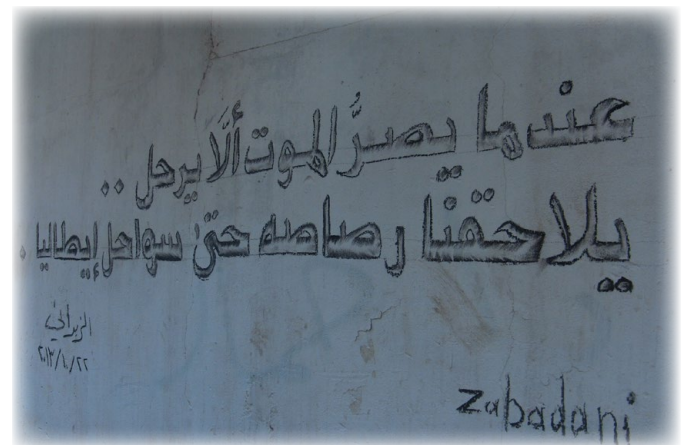 عندما يصرُّ الموت ألَّا يرحل ..
يلاحقنا رصاصه حتى سواحل إيطاليا .
الزبداني
٢٠١٣/١٠/٢٢
zabadani